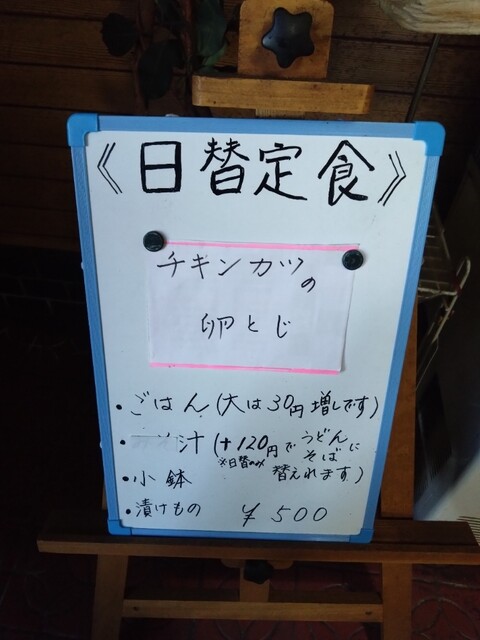 《日替定食》
チキンカツの
卵とじ
・ごはん(大は30円増しです)
汁(+120円でうどんそばに
※日替のみ 替えれます)
・小鉢
・漬けもの ¥500